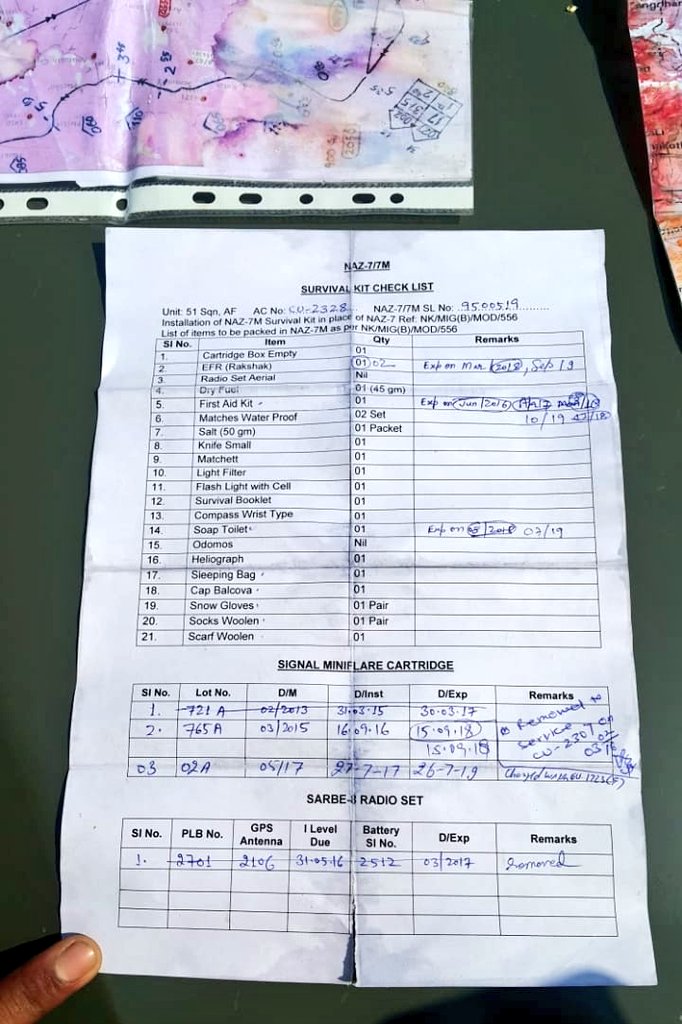 NAZ-7/7M
SURVIVAL KIT CHECK LIST
Unit: 51 Sqn, AF AC No: CU-2328 NAZ-7/7M SL No: 9500519
Installation of NAZ-7M Survival Kit in place of NAZ-7 Ref: NK/MIG(B)/MOD/556
List of items to be packed in NAZ-7M as per NK/MIG(B)/MOD/556
Sl No. Item Qty Remarks
1. Cartridge Box Empty 01
2. EFR (Rakshak) 01 02 Exp on Mar /2018, Sep/19
3. Radio Set Aerial Nil
4. Dry Fuel 01 (45 gm)
5. First Aid Kit 01 Exp on Jun/2016
6. Matches Water Proof 02 Set 10/19
7. Salt (50 gm) 01 Packet
8. Knife Small 01
9. Matchett 01
10. Light Filter 01
11. Flash Light with Cell 01
12. Survival Booklet 01
13. Compass Wrist Type 01
14. Soap Toilet 01 Exp on 07/19
15. Odomos Nil
16. Heliograph 01
17. Sleeping Bag 01
18. Cap Balcova 01
19. Snow Gloves 01 Pair
20. Socks Woolen 01 Pair
21. Scarf Woolen 01
SIGNAL MINIFLARE CARTRIDGE
Sl No. Lot No. D/M D/Inst D/Exp Remarks
1. 721 A 02/2013 31.03.15 30.03.17
2. 765A 03/2015 16.09.16 15.09.18 Removed
Service
CU-2307 on
15.09.18
03 02A 05/17 27-7-17 26-7-19
SARBE-8 RADIO SET
Sl No. PLB No. GPS Antenna I Level Due Battery Sl No. D/Exp Remarks
1. 2701 2106 31.05.16 2512 03/2017 Removed